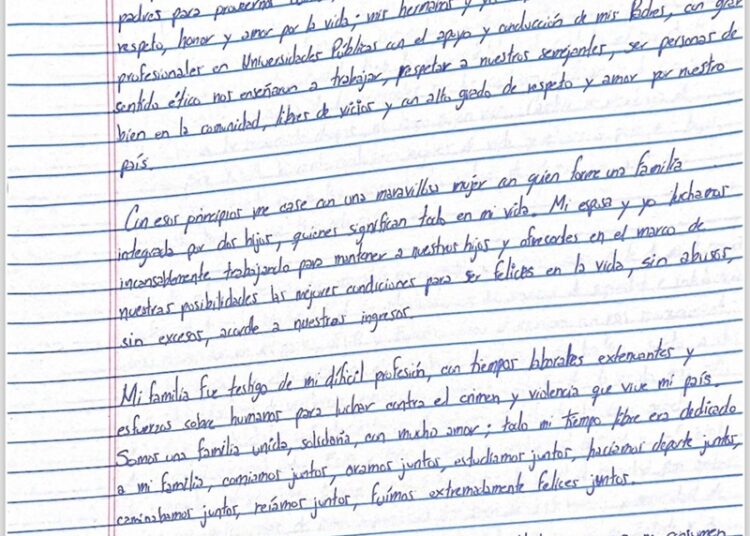 padres para
respeto, honor y amor por la vida; mis hermanos y
profesionales en Universidades Públicas con el apoyo y conducción de mis Padres, con gran
sentido ético nos enseñaron a trabajar, respetar a nuestros semejantes, ser personas de
bien en la comunidad, libres de vicios y con alto grado de respeto y amor por nuestro
país.
Con esos principios me case con una maravillosa mujer con quien forme una familia
integrada por dos hijos, quienes significan todo en mi vida. Mi esposa y yo luchamos
incansablemente trabajando para mantener a nuestros hijos y ofrecerles en el marco de
nuestras posibilidades las mejores condiciones para ser felices en la vida, sin abusos,
sin excesos, acorde a nuestros ingresos.
Mi familia fue testigo de mi difícil profesión, con tiempos laborales extenuantes y
esfuerzos sobre humanos para luchar contra el crimen y violencia que vive mi país.
Somos una familia unida, solidaria, con mucho amor; todo mi tiempo libre era dedicado
a mi familia, comíamos juntos, oramos juntos, estudiamos juntos, hacíamos deporte juntos,
caminabamos juntos, reíamos juntos, fuimos extremadamente felices juntos.